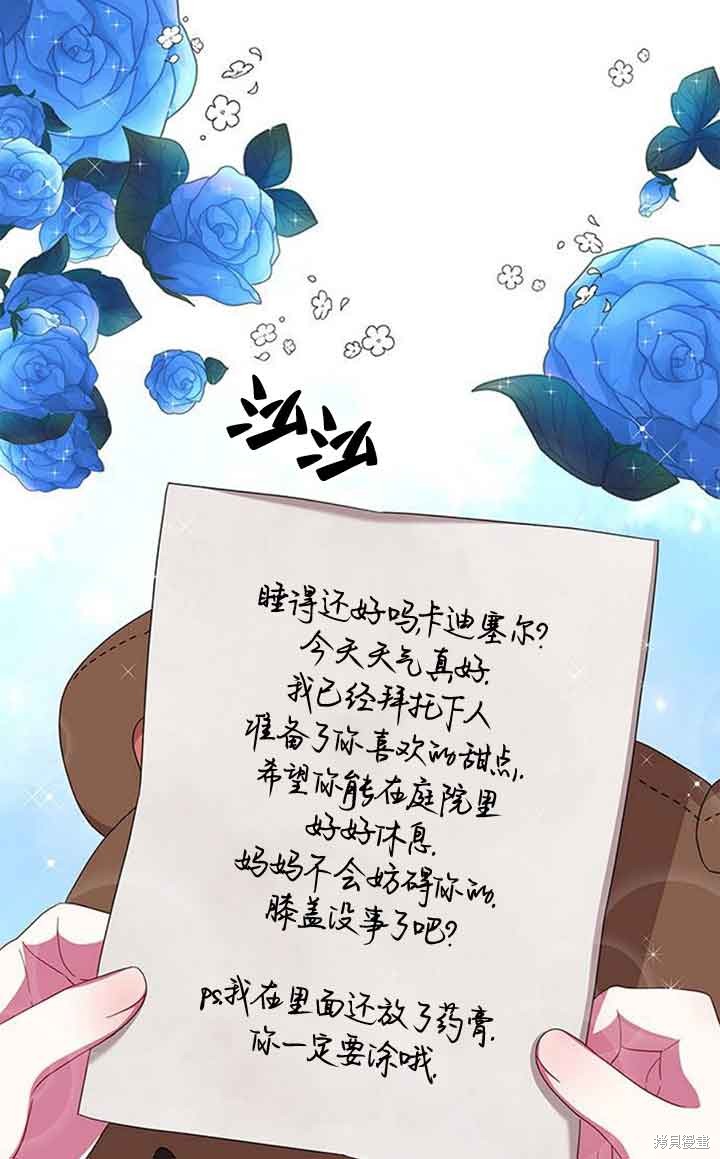 泓泓
睡得还好吗,卡迪塞尔?
今天天气真好.
我已经拜托下人
准备了你喜欢的甜点,
希望你能在庭院里
好好休息.
妈妈不会妨碍你的.
膝盖没事了吧?
ps我在里面还放了药膏.
你一定要涂哦.
拷貝漫畫